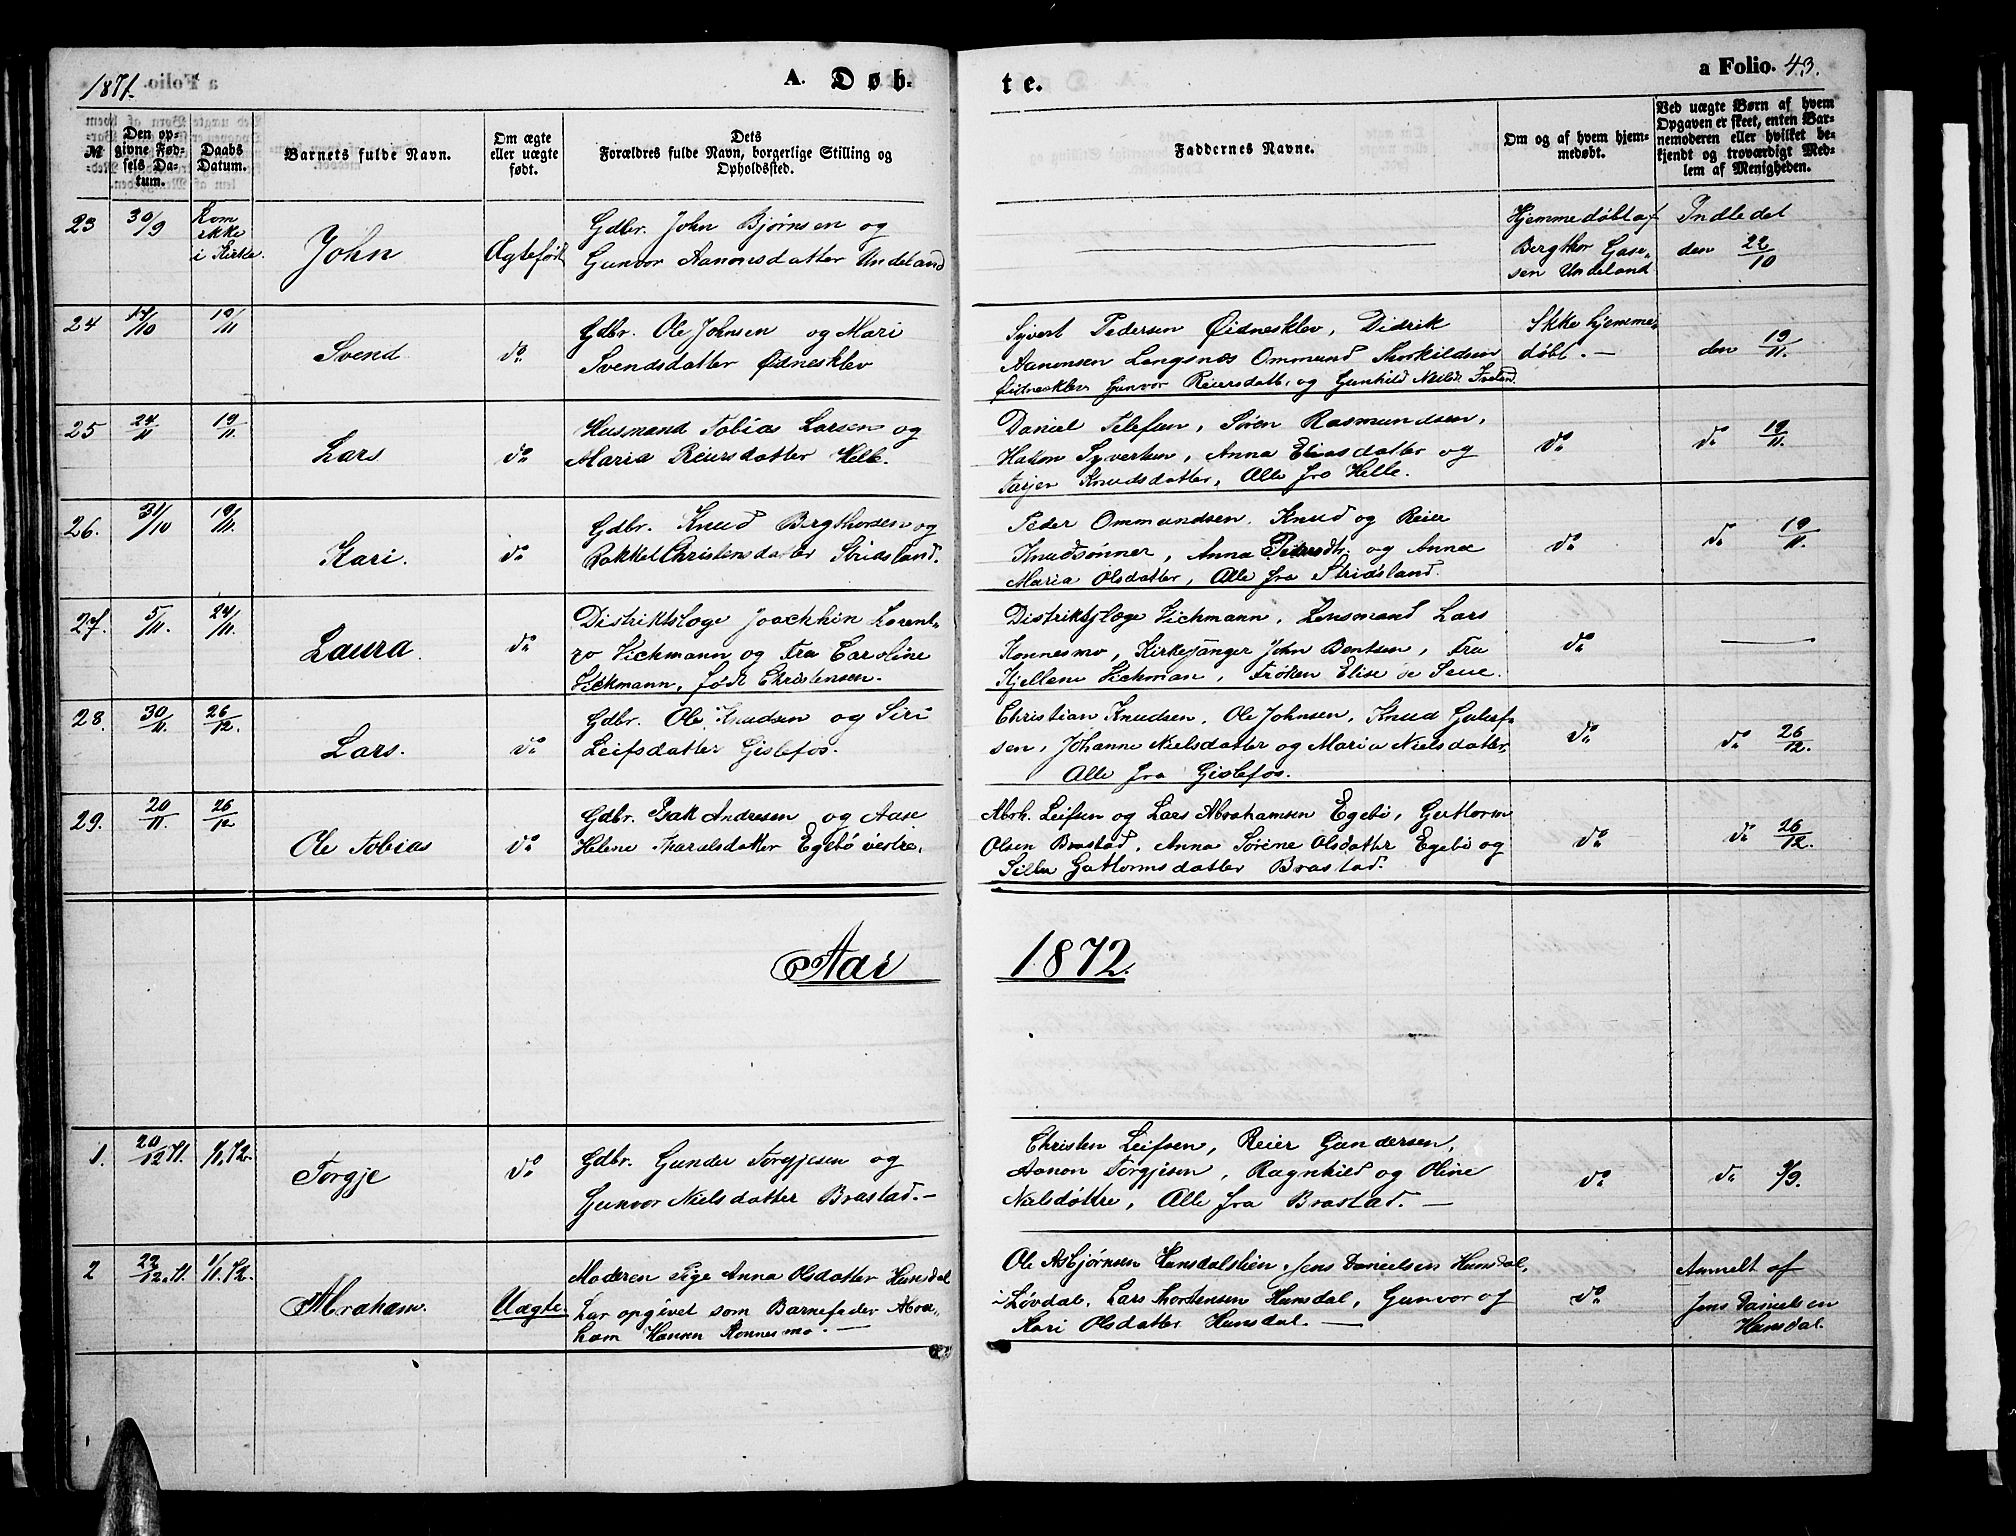 1871.
A. Døb.
te.
a Folio. 43.
№
Den op-
givne Fød-
sels Da-
tum.
Daabs
Datum.
Barnets fulde Navn.
Om ægte
eller uægte
født.
Dets
Forældres fulde Navn, borgerlige Stilling og
Opholdssted.
Faddernes Navne.
Om og af hvem hjem-
medøbt.
Ved uægte Børn af hvem
Opgaven er skeet, enten Bar-
nemoderen eller hvilket be-
kjendt og troværdigt Med-
lem af Menigheden.
23
30/9
Kom
ikke
i Kirke.
John
Ægtefød
Gdbr. John Bjørnsen og
Gunvor Aanonsdatter Undeland
Hjemmedøbt af
Bergthor Gase-
sen Undeland
Indledet
den 22/10
24
14/10
19/11
Svend
do
Gdbr. Ole Johnsen og Mari
Svendsdatter Øidnesklev
Syvert Pedersen Øidnesklev, Didrik
Aanonsen Langsnæs Ommund Thorkildsen
Øidnesklev Gunvor Reiersdatt. og Gunhild Nielsd.
Ikke hjemme-
døbt. —
den 19/11.
25
24/11
19/11.
Lars
do
Husmand Tobias Larsen og
Maria Reiersdatter Helle.
Daniel Tellefsen, Søren Rasmundsen,
Hakon Syvertsen, Anna Eliasdatter og
Tarjer Knudsdatter, Alle fra Helle.
do
do 19/11.
26.
31/10
19/11.
Kari.
do
Gdbr. Knud Bergthorsen og
Rakkel Christensdatter Stridsland.
Peder Ommundsen, Knud og Reier
Knudsønner, Anna Pedersdtr. og Anna
Maria Olsdatter, Alle fra Stridsland.
do
do 19/11.
27.
5/11.
24/11.
Laura.
do
Distriktslæge Joachhin Lorent-
zo Vickmann og Fra Caroline
Vickmann, født Christensen.
Distriktslæge Vichmann, Lensmand Lars
Konnesmo, Kirkesanger John Bentsen, Fra
Kjellene Vichman, Frøken Elise
do
28.
30/11.
26/12.
Lars.
do
Gdbr. Ole Knudsen og Siri
Leifsdatter Gislefos.
Christian Knudsen, Ole Johnsen, Knud Gulef-
sen, Johanne Nielsdatter og Maria Nielsdatter,
Alle fra Gislefos.
do
do 26/12.
29.
20/11.
26/12
Ole Tobias
do
Gdbr. Isak Andresen og Aase
Helene Tharalsdatter Egebø vestre.
Abrh. Leifsen og Lars Abrahamsen Egebø, Guttorm
Olsen Brastad, Anna Sørine Olsdatter Egebø og
Sille Guttormsdatter Brastad.
do
do 26/12.
Aar
1872.
1.
20/12 71.
1/1. 72.
Torgje
do
Gdbr. Gunder Torgjesen og
Gunvor Nielsdatter Brastad. —
Christen Leifsen, Reier Gundersen,
Aanon Torgjesen, Ragnhild og Oline
Nielsdøttre, Alle fra Brastad. —
do
do
2
22/12. 71.
1/1. 72.
Abraham.
Uægte.
Moderen Pige Anna Olsdatter Hunsdal
har opgivet som Barnefader Abra-
ham Hansen Konnesmo. —
Ole Asbjørnsen Hunsdalslien, Jens Danielsen Hunsdal,
Løvdal, Lars Thorstensen Hunsdal, Gunvor og
Kari Olsdatter Hunsdal. —
do
Anmelt af
Jens Danielsen
Hunsdal.